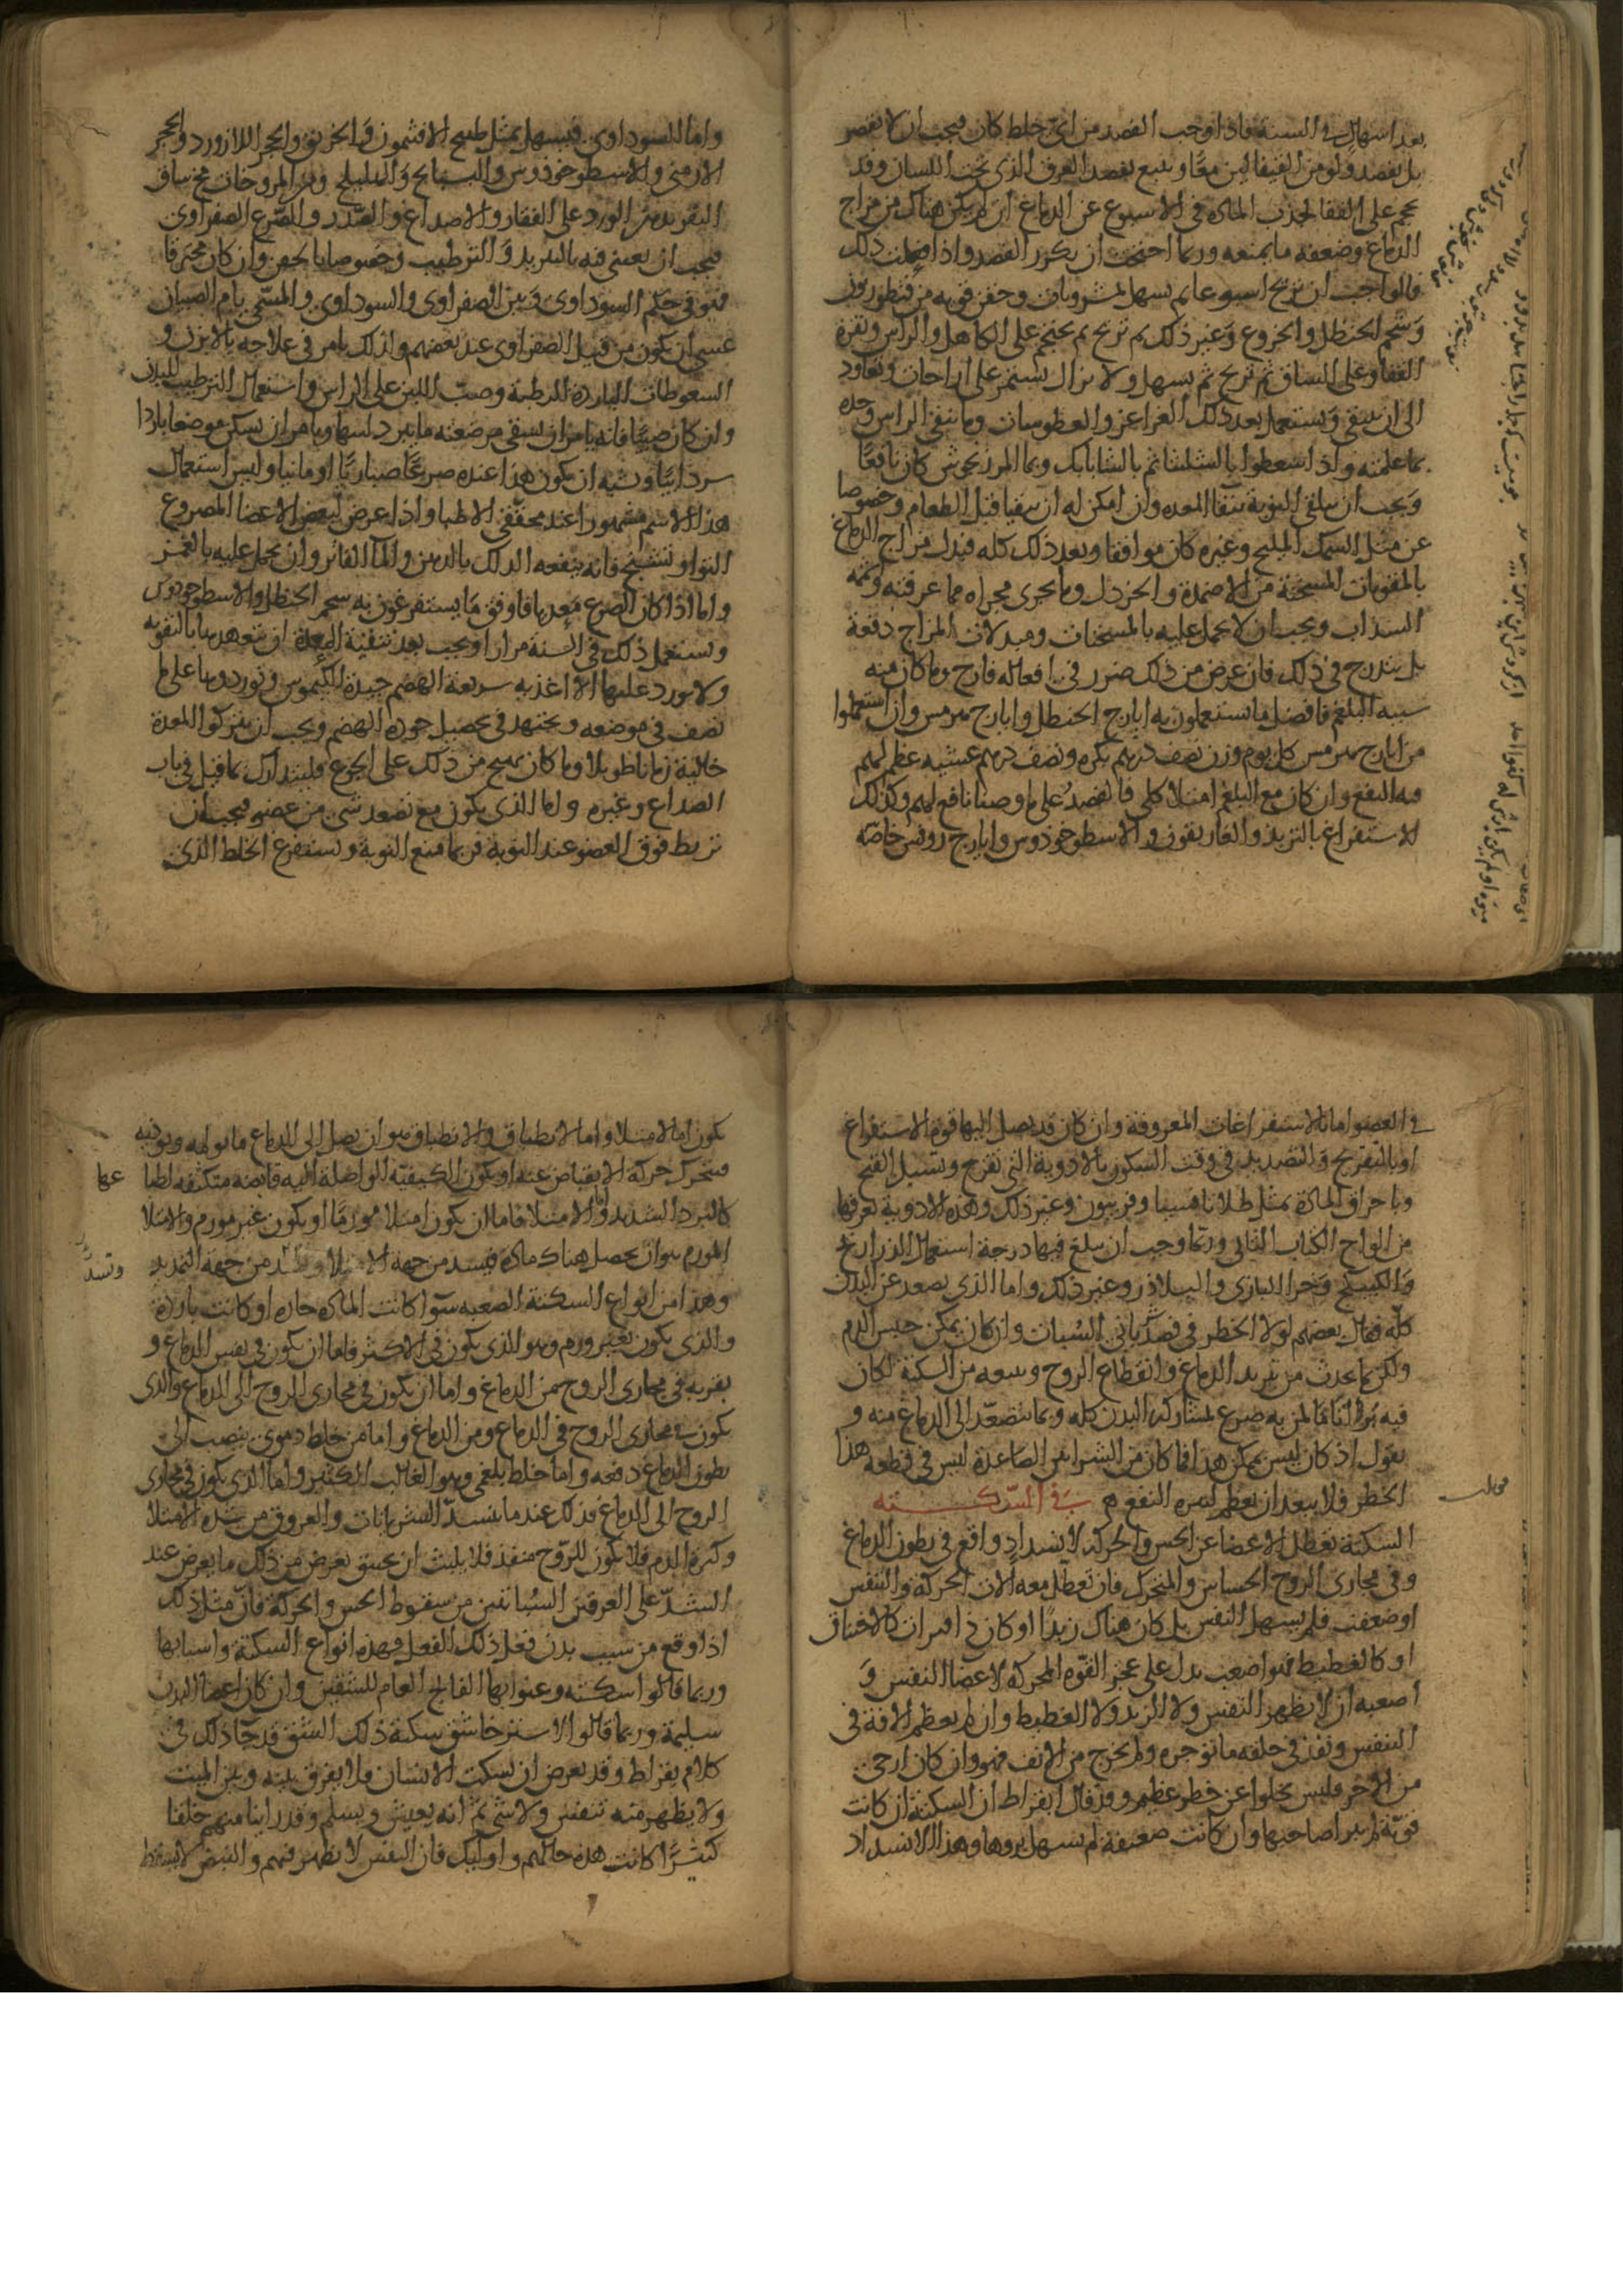 بعد اسهال في السنة فاذا وجب الفصد من اي خلط كان فيجب ان لا يقصر
بل يفصد ولو من القيفالين معا ويتبع بفصد العرق الذي تحت اللسان وقد
يحجم على القفا لجذب المادة في الاسبوع عن الدماغ ان لم يكن هناك من مزاج
الدماغ وضعفه ما يمنعه وربما احتجت ان يكرر الفصد واذا فعلت ذلك
فالواجب ان تريح اسبوعا ثم يسهل بمشروبات وحقن قوية من قنطوريون
وشحم الحنظل والخروع وغير ذلك ثم تريح ثم يحجم على الكاهل والراس ونقرة
القفا وعلى الساق ثم تريح ثم يسهل ولا يزال يستمر على اراحات وتعاود
الى ان ينقى ويستعمل بعد ذلك الغراغر والعطوسات وما ينقي الراس وحده
بما علمته واذا سعطوا بالشلثا ثم بالشابابك وبما المرزنجوش كان نافعا
ويجب ان يتلقى النوبة بنقا المعدة وان امكن له ان يتقيا قبل الطعام وخصوصا
عن مثل السمك المليح وغيره كان موافقا وبعد ذلك كله فيدل مزاج الدماغ
بالمقويات المسخنة من الاضمدة والخردل وما يجري مجراه مما عرفته وشمه
السذاب ويجب ان لا يحمل عليه بالمسخنات ومبدلات المزاج دفعة
بل يتدرج في ذلك فان عرض من ذلك ضرر في افعاله فارح وما كان منه
سببه البلغم فافضل ما يستعملون به ايارج الحنظل وايارج هرمس وان استعملوا
من ايارج هرمس كل يوم وزن نصف درهم بكره ونصف درهم عشيه عظم لهم
فيه النفع وان كان مع البلغم امتلا كلي فالفصد على ما وصفنا نافع لهم وكذلك
الاستفراغ بالتربذ والغاريقون والاسطوخوذوس وايارج روفس خاصه
واما السوداوي فيسهل بمثل طبيخ الافثمون والخربق والحجر اللازورد والحجر
الارمني والاسطوخوذوس والبسبايج والهليلج ومن المروخات مخ ساق
البقر بدهن الورد على الفقار والاصداغ والصدر والصرع الصفراوي
فيجب ان يعتنى فيه بالتبريد والترطيب وخصوصا بالحقن وان كان محترقا
فهو في حكم السوداوي وبين الصفراوي والسوداوي والمسمى بام الصبيان
عسى ان يكون من قبيل الصفراوي عند بعضهم ولذلك يامر في علاجه بالابزن و
السعوطات الباردة الرطبة وصب اللبن على الراس واستعمال الترطيب للبدن
وان كان صبيا فانه يامر ان يسقى مرضعته ما يبرد لبنها ويامر ان يسكن موضعا باردا
سردابيا ويشبه ان يكون هذا عنده صرعا صباريا او مانيا وليس استعمال
هذا الاسم مشهورا عند محققي الاطبا واذا عرض لبعض الاعضا المصروع
التوا وتشنج فانه ينفعه الدلك بالدهن والما الفاتر وان يحمل عليه بالغمز
واما اذا كان الصرع معديا فاوفق ما يستفرغون به شحم الحنظل والاسطوخودوس
وتستعمل ذلك في السنة مرارا ويجب بعد تنقية المعدة ان تتعهدها بالتقوية
ولا يورد عليها الا اغذيه سريعة الهضم جيدة الكيموس وتوردوها على ما
نصف في موضعه ويجتهد في تحصيل جودة الهضم ويجب ان يتركوا المعدة
خالية زمانا طويلا وما كان يهيج من ذلك على الجوع فليتدارك بما قيل في باب
الصداع وغيره واما الذي يكون مع تصعد شي من عضو فيجب ان
تربط فوق العضو عند النوبة فربما منع النوبة ويستفرغ الخلط الذي
في العضو اما بالاستفراغات المعروفة وان كان قد يصل اليها قوة الاستفراغ
او بالتقريح والتصديد في وقت السكون بالادوية التي تقرح وتسيل القيح
وباحراق المادة بمثل طلا ثافسيا وفربيون وغير ذلك وهذه الادوية تعرفها
من الواح الكتاب الثاني وربما وجب ان يبلغ فيها درجة استعمال الذراريح
والكبيكج وخرا البازي والبلاذر وغير ذلك واما الذي يصعد عن البدن
كله فقال بعضهم لولا الخطر في فصد شرياني السبات وان كان يمكن حبس الدم
ولكن بما يحدث من تبريد الدماغ وانقطاع الروح وسعه من السكتة لكان
فيه برا تاما لمن به صرع بمشاركة البدن كله وبما يتصعد الى الدماغ منه و
يقول اذ كان ليس يمكن هذا فما كان من الشرايين الصاعدة ليس في قطعه هذا
الخطر فلا يبعد ان يعظم لبتره النفع
في السكتة
السكتة تعطل الاعضا عن الحس والحركة لانسداد واقع في بطون الدماغ
وفي مجاري الروح الحساس والمتحرك فان تعطل معه الات الحركة والتنفس
او ضعفت فلم يسهل النفس بل كان هناك زبدا او كان ذا فتران كالاختناق
او كالغطيط فهو اصعب يدل على عجز القوة المحركة لاعضا النفس و
اصعبه ان لا يظهر التنفس ولا الزبد ولا الغطيط وان لم يعظم الافة في
التنفس ونفذ في حلقه ما توجره ولم يخرج من الانف فهو وان كان ارجى
من الاخر فليس يخلوا عن خطر عظيم وقد قال ابقراط ان السكتة ان كانت
قوية لم يبرا صاحبها وان كانت ضعيفة لم يسهل بروها وهذا الانسداد
يكون اما لامتلا واما لانطباق والانطباق هو ان يصل الى الدماغ ما يولمه ويوذيه
فيتحرك حركة الانقباض عنه او يكون الكيفية الواصلة اليه قابضه متكثفة لطبا عها
كالبرد الشديد واما الامتلا فاما ان يكون امتلا مورما او يكون غير مورم والامتلا
المورم هو ان يحصل هناك مادة فيسد من جهة الامتلا وتسد من جهة التمديد
وهذا من انواع السكتة الصعبه سوا كانت المادة حارة او كانت باردة
والذي يكون بغير ورم وهو الذي يكون في الاكثر فاما ان يكون في نفس الدماغ و
بقربه في مجاري الروح من الدماغ واما ان يكون في مجاري الروح الى الدماغ والذي
يكون في مجاري الروح في الدماغ ومن الدماغ واما من خلط دموي ينصب الى
بطون الدماغ دفعه واما خلط بلغمي وهو الغالب الكثير واما الذي يكون في مجاري
الروح الى الدماغ فذلك عند ما ينسد الشريانات والعروق من شدة الامتلا
وكثرة الدم فلا يكون للروح منفذ فلا يلبث ان يختنق يعرض من ذلك ما يعرض عند
الشد على العرقين السباتيين من سقوط الحس والحركة فان مثل ذلك
اذا وقع من سبب بدني فعل ذلك الفعل فهذه انواع السكتة واسبابها
وربما قالوا سكته وعنوا بها الفالج العام للشقين وان كان اعضا البدن
سليمة وربما قالوا لاسترخا شق سكتة ذلك الشق قد جا ذلك في
كلام بقراط وقد يعرض ان يسكت الانسان فلا يفرق بينه وبين الميت
ولا يظهر منه تنفس ولا شي ثم انه يعيش ويسلم وقد راينا منهم خلقا
كثيرا كانت هذه حالهم واوليك فان النفس لا يظهر فيهم والنبض لا يسقط